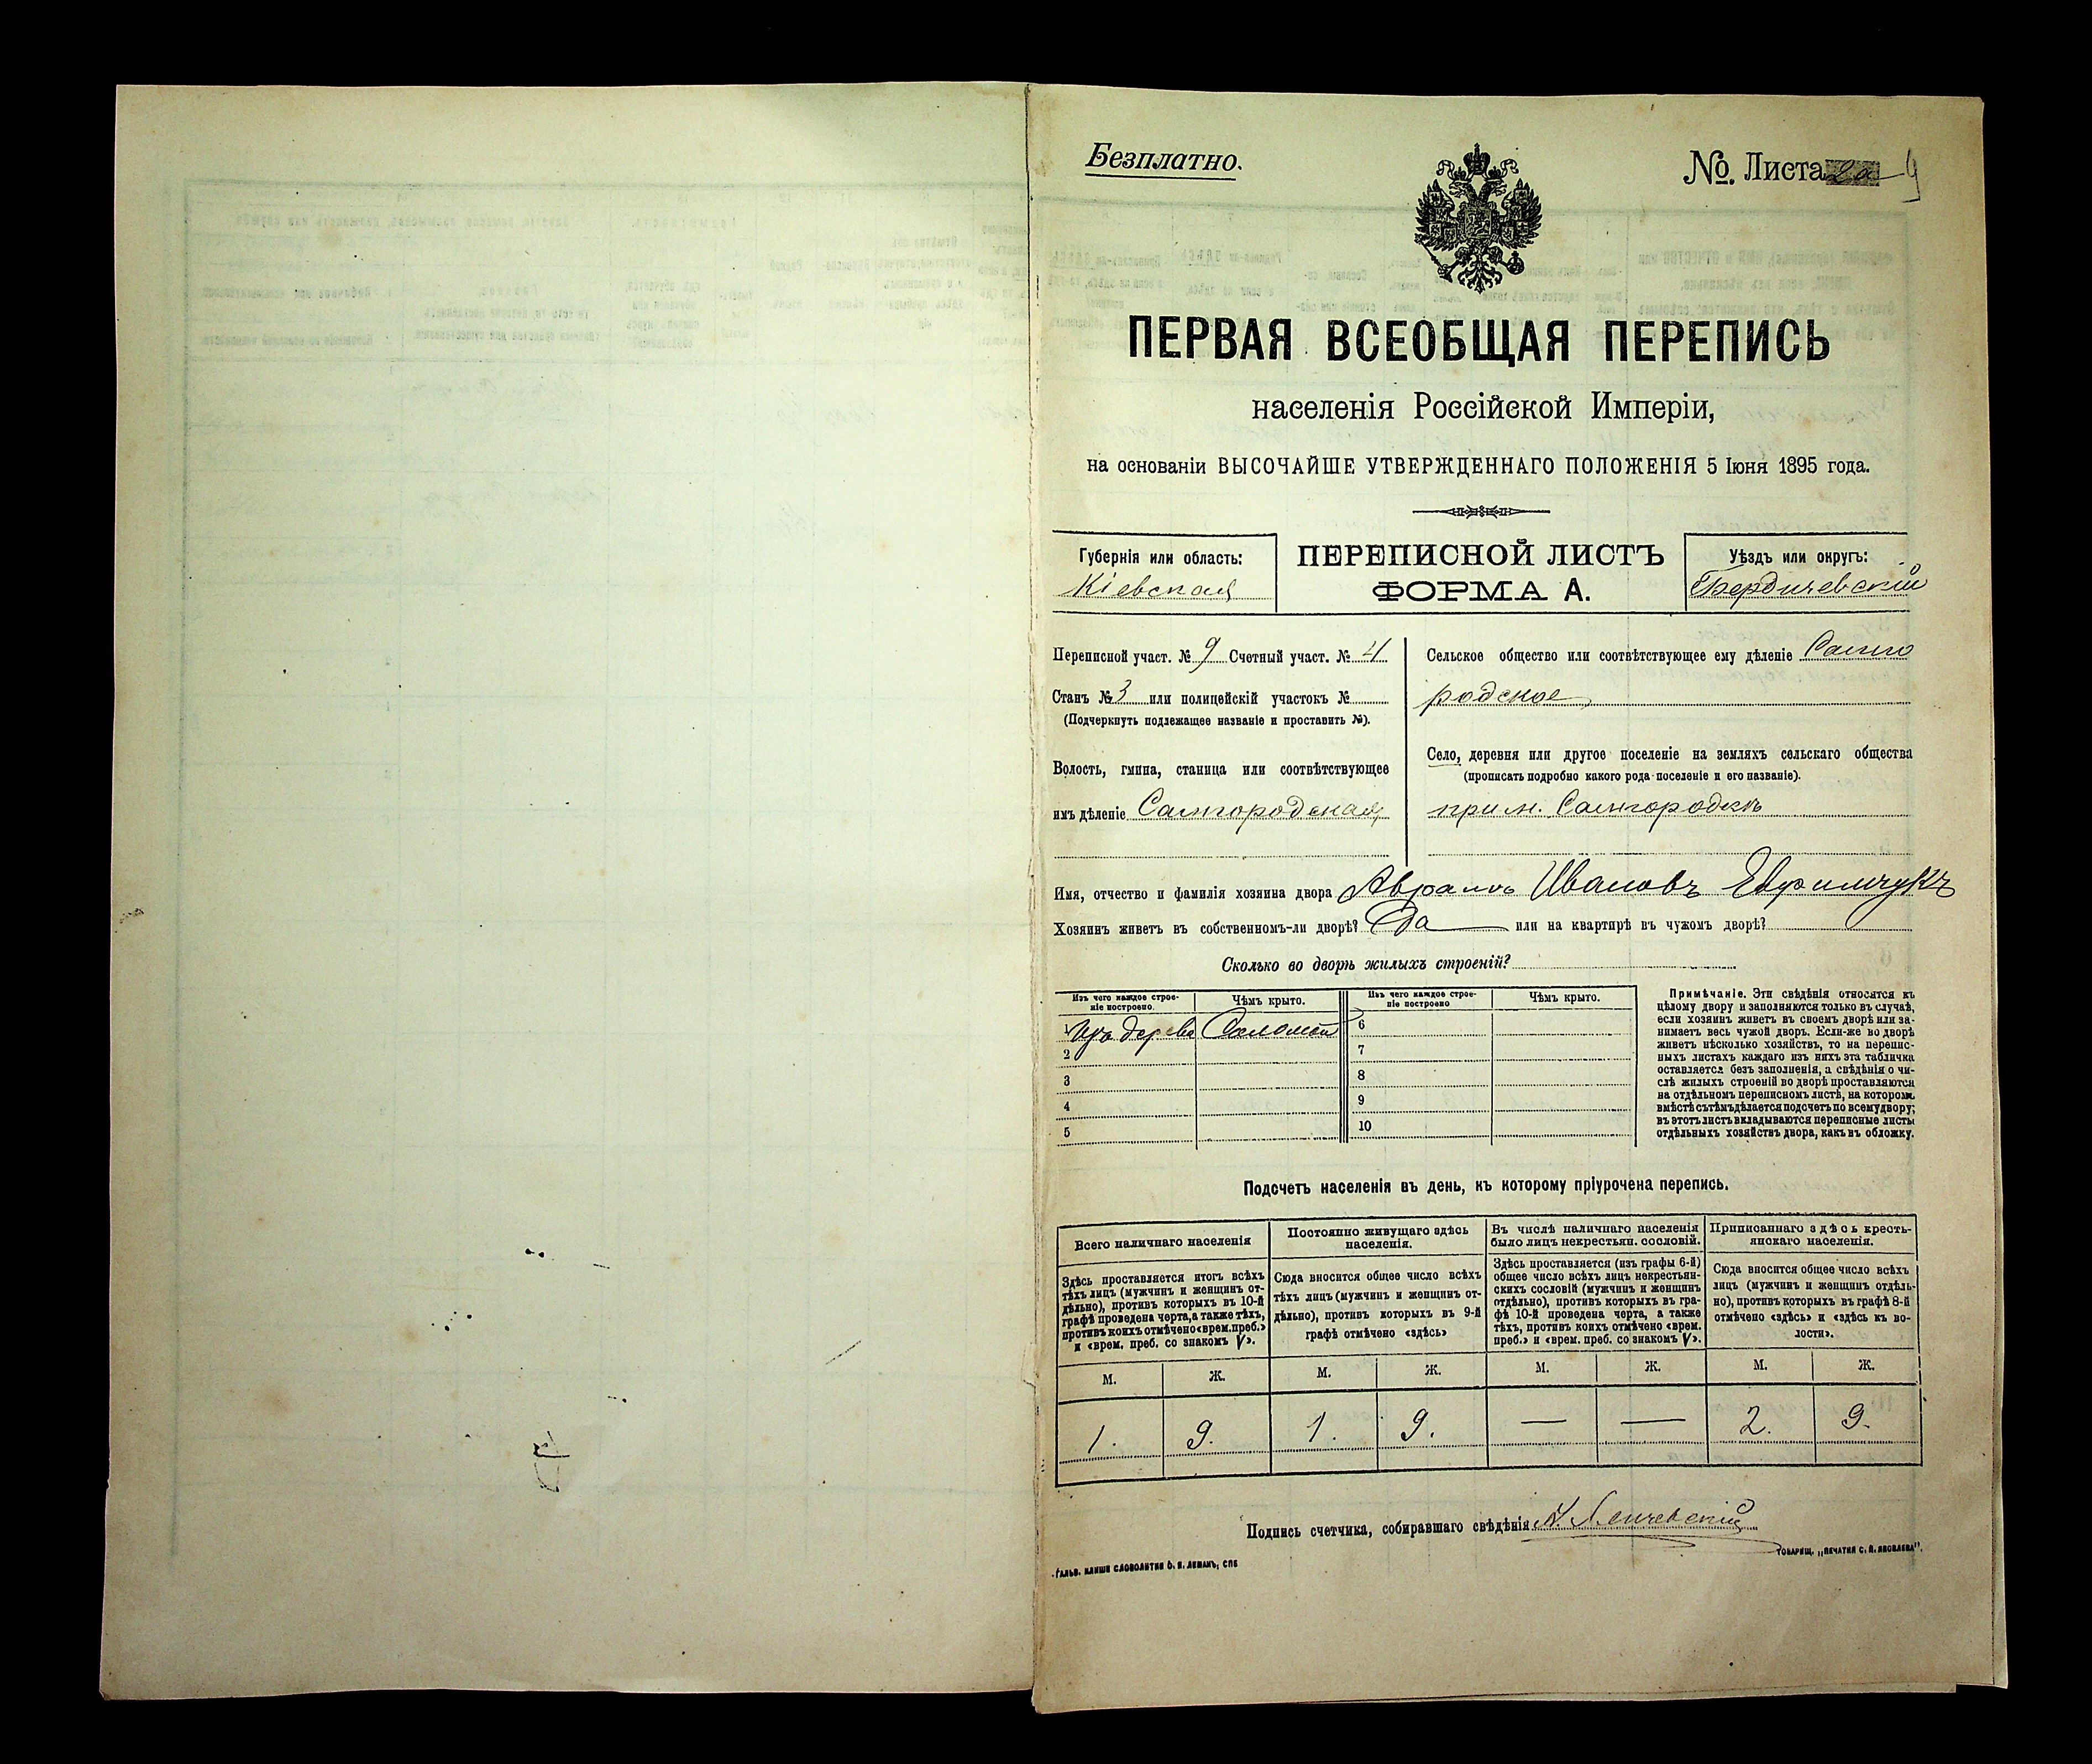 Безплатно.
№. Листа
ПЕРВАЯ ВСЕОБЩАЯ ПЕРЕПИСЬ
населенія Россійской Имперіи,
на основаніи ВЫСОЧАЙШЕ УТВЕРЖДЕННАГО ПОЛОЖЕНІЯ 5 Іюня 1895 года.
Губернія или область:
Кіевская
ПЕРЕПИСНОЙ ЛИСТЪ
ФОРМА А.
Уѣздъ или округъ:
Бердичевскій
Переписной участ. № 9 Счетный участ. № 4
Станъ № 3 или полицейскій участокъ №
(Подчеркнуть подлежащее названіе и проставить №).
Волость, гмина, станица или соотвѣтствующее
имъ дѣленіе Самгородская
Сельское общество или соотвѣтствующее ему дѣленіе Самго
родское
Село, деревня или другое поселеніе на земляхъ сельскаго общества
(прописать подробно какого рода поселеніе и его названіе).
при м. Самгородкѣ
Имя, отчество и фамилія хозяина двора Аврамъ Ивановъ Евфимчукъ
Хозяинъ живетъ въ собственномъ-ли дворѣ? Да или на квартирѣ въ чужомъ дворѣ?
Сколько во дворѣ жилыхъ строеній?
Изъ чего каждое строе-
ніе построено.
Чѣмъ крыто.
Изъ чего каждое строе-
ніе построено
Чѣмъ крыто.
1 изъ дерева Соломой 6
2 7
3 8
4 9
5 10
Примѣчаніе. Эти свѣдѣнія относятся къ
цѣлому двору и заполняются только въ случаѣ,
если хозяинъ живетъ въ своемъ дворѣ или за-
нимаетъ весь чужой дворъ. Если-же во дворѣ
живетъ нѣсколько хозяйствъ, то на перепис-
ныхъ листахъ каждаго изъ нихъ эта табличка
оставляется безъ заполненія, а свѣдѣнія о чи-
слѣ жилыхъ строеній во дворѣ проставляются
на отдѣльномъ переписномъ листѣ, на которомъ
вмѣстѣ съ тѣмъ дѣлается подсчетъ по всему двору;
въ этотъ листъ вкладываются переписные листы
отдѣльныхъ хозяйствъ двора, какъ въ обложку.
Подсчетъ населенія въ день, къ которому пріурочена перепись.
Всего наличнаго населенія
Здѣсь проставляется итогъ всѣхъ
тѣхъ лицъ (мужчинъ и женщинъ от-
дѣльно), противъ которыхъ въ 10-й
графѣ проведена черта, а также тѣхъ,
противъ коихъ отмѣчено «врем. преб.»
и «врем. преб. со знакомъ V».
Постоянно живущаго здѣсь
населенія.
Сюда вносится общее число всѣхъ
тѣхъ лицъ (мужчинъ и женщинъ от-
дѣльно), противъ которыхъ въ 9-й
графѣ отмѣчено «здѣсь»
Въ числѣ наличнаго населенія
было лицъ некрестьян. сословій.
Здѣсь проставляется (изъ графы 6-й)
общее число всѣхъ лицъ некрестьян-
скихъ сословій (мужчинъ и женщинъ
отдѣльно), противъ которыхъ въ гра-
фѣ 10-й проведена черта, а также
тѣхъ, противъ коихъ отмѣчено «врем.
преб.» и «врем. преб. со знакомъ V».
Приписаннаго здѣсь кресть-
янскаго населенія.
Сюда вносится общее число всѣхъ
лицъ (мужчинъ и женщинъ отдѣль-
но), противъ которыхъ въ графѣ 8-й
отмѣчено «здѣсь» и «здѣсь къ во-
лости».
М. Ж. М. Ж. М. Ж. М. Ж.
1. 9. 1. 9. — — 2. 9.
Подпись счетчика, собиравшаго свѣдѣнія
Гальв. клише словолитни О. И. Леманъ, СПБ
Товарищ. „Печатня С. П. Яковлева".